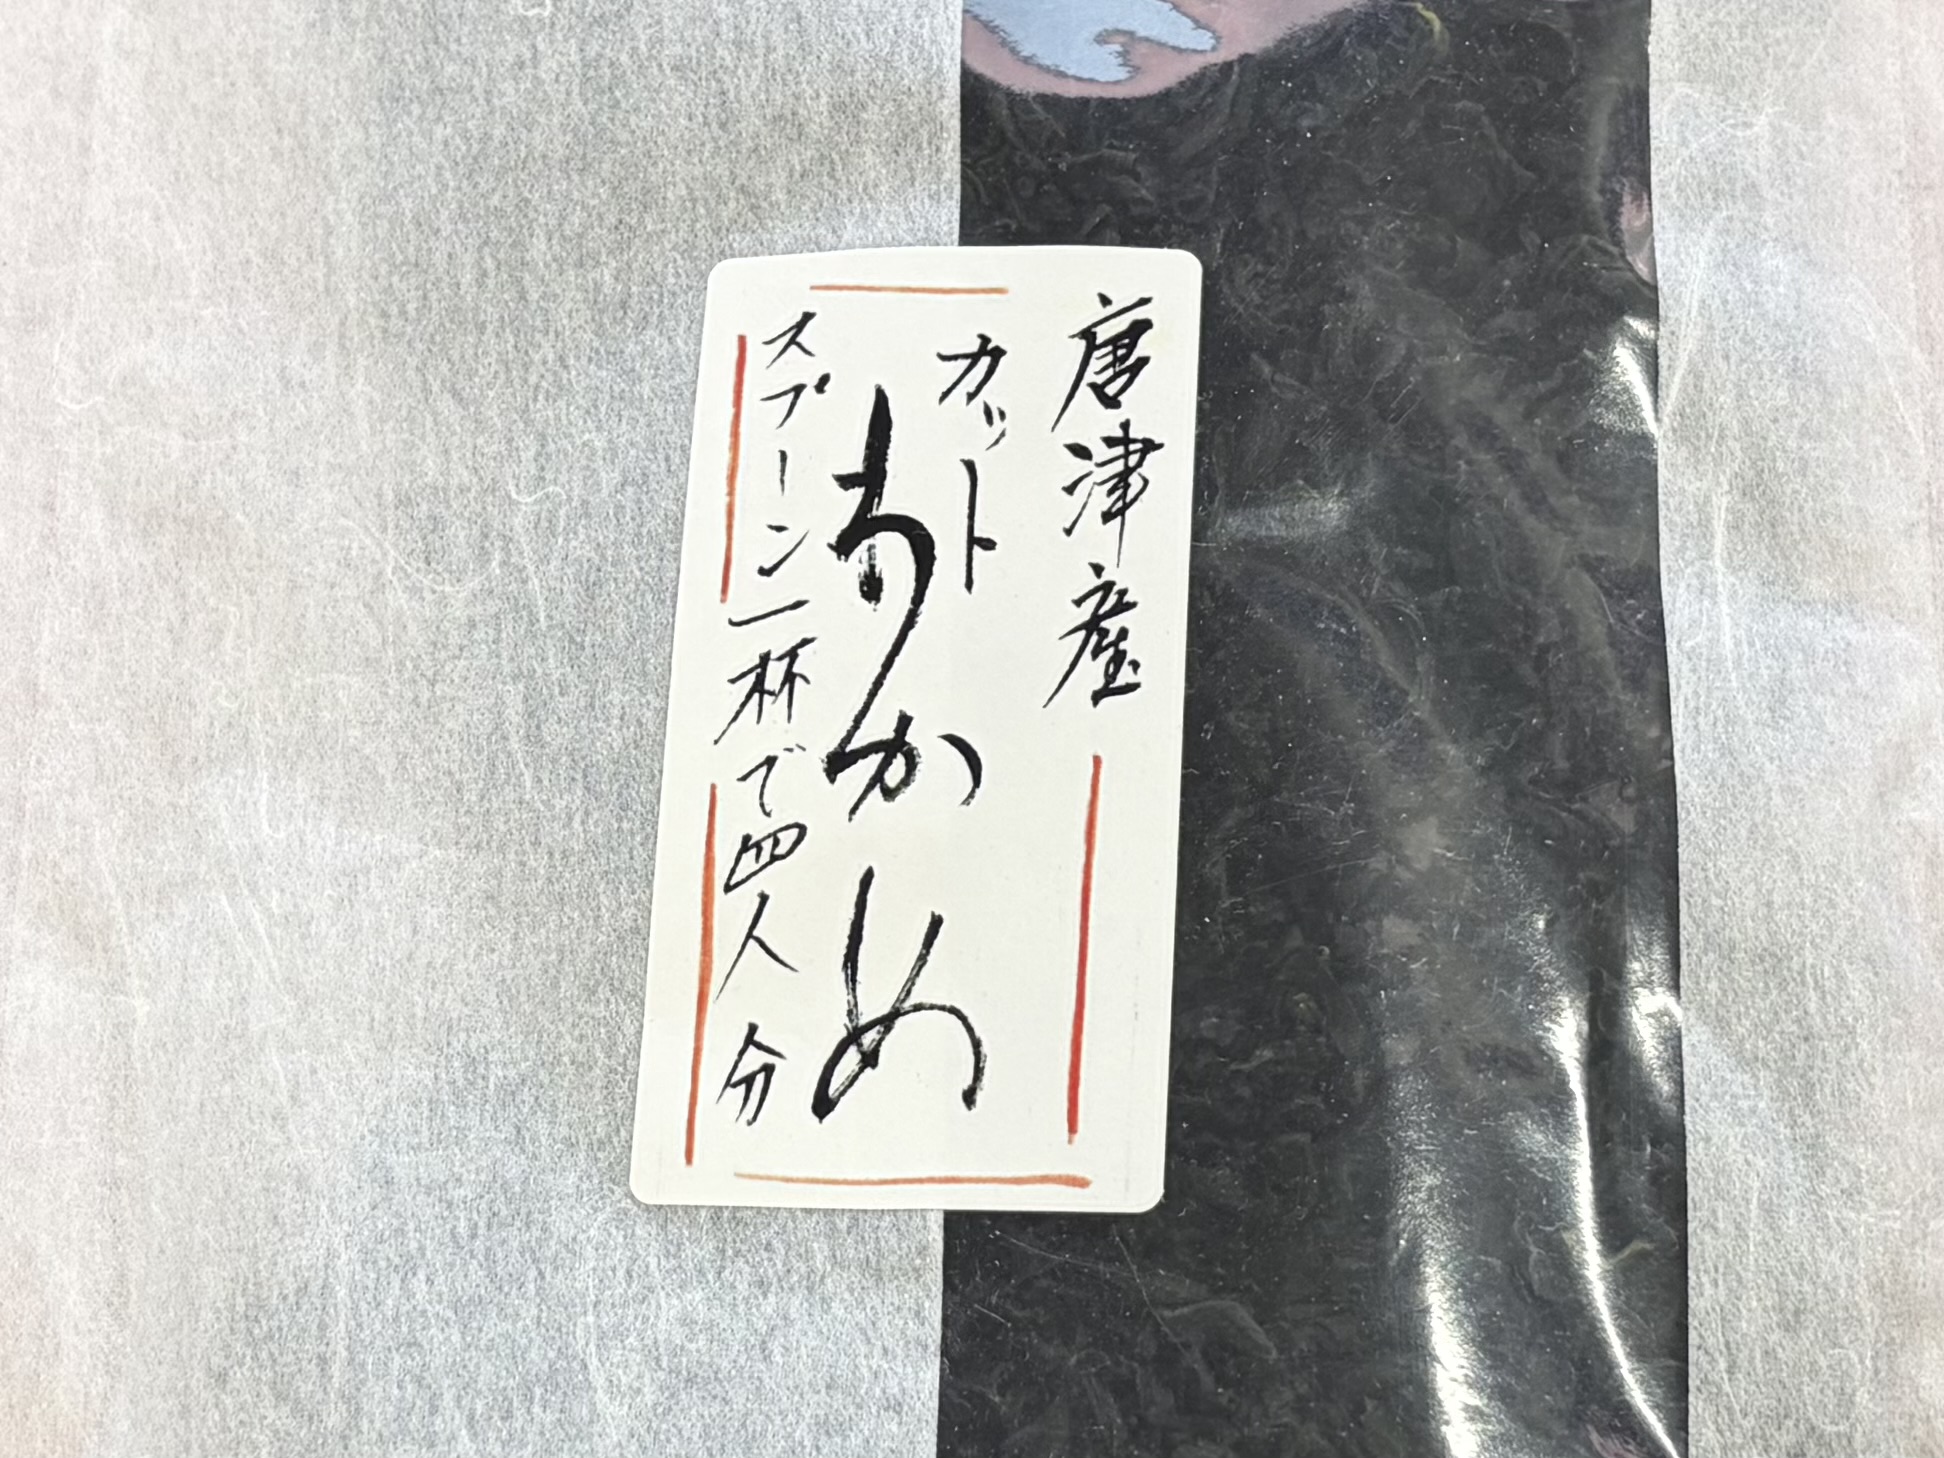 唐津産
カット
わかめ
スプーン一杯で四人分